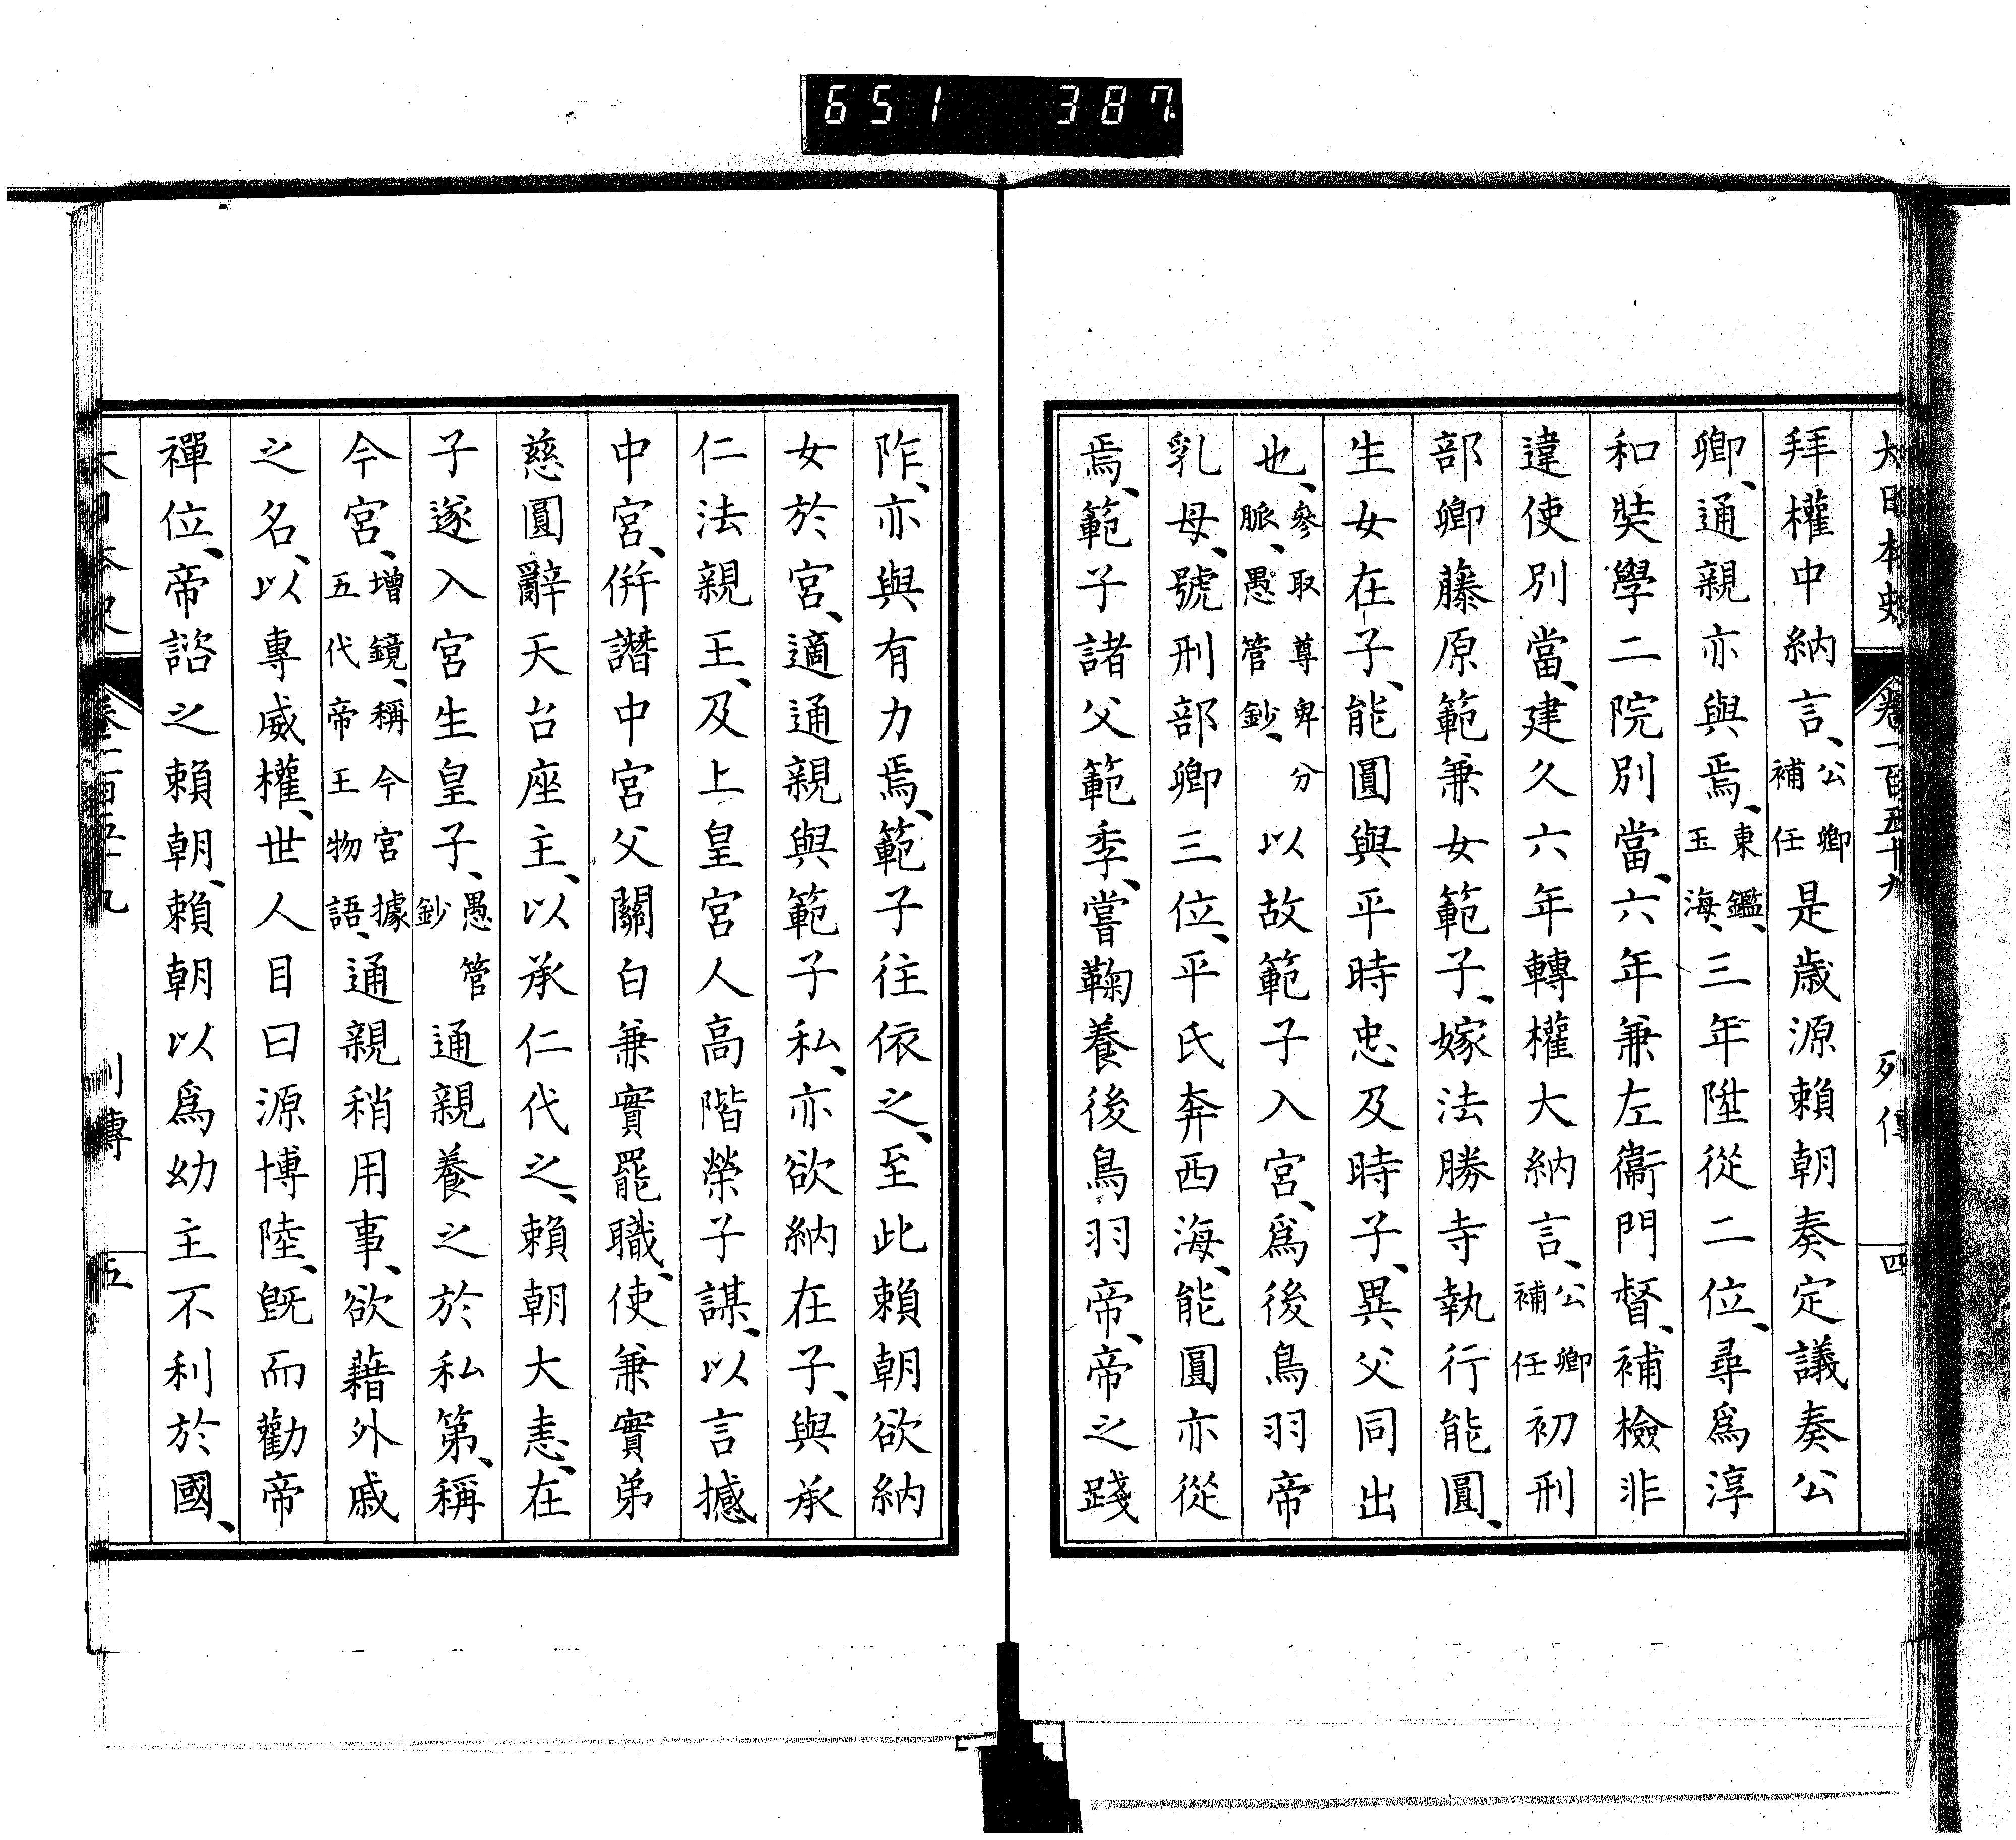 651 387
大日本史 卷一百五十九 列傳 四
拜權中納言、公卿補任是歲源賴朝奏定議奏公
卿、通親亦與焉、東鑑、玉海、三年陞從二位、尋爲淳
和奘學二院別當、六年兼左衞門督、補檢非
違使別當、建久六年轉權大納言、公卿補任初刑
部卿藤原範兼女範子、嫁法勝寺執行能圓、
生女在子、能圓與平時忠及時子、異父同出
也、參取尊卑分脈、愚管鈔、以故範子入宮、爲後鳥羽帝
乳母、號刑部卿三位、平氏奔西海、能圓亦從
焉、範子諸父範季、嘗鞠養後鳥羽帝、帝之踐
阼、亦與有力焉、範子往依之、至此賴朝欲納
女於宮、適通親與範子私、亦欲納在子、與承
仁法親王、及上皇宮人高階榮子謀、以言撼
中宮、併譖中宮父關白兼實罷職、使兼實弟
慈圓辭天台座主、以承仁代之、賴朝大恚、在
子遂入宮生皇子、愚管鈔通親養之於私第、稱
今宮、增鏡、稱今宮據五代帝王物語、通親稍用事、欲藉外戚
之名、以專威權、世人目曰源博陸、旣而勸帝
禪位、帝諮之賴朝、賴朝以爲幼主不利於國、
大日本史 卷一百五十九 列傳 五